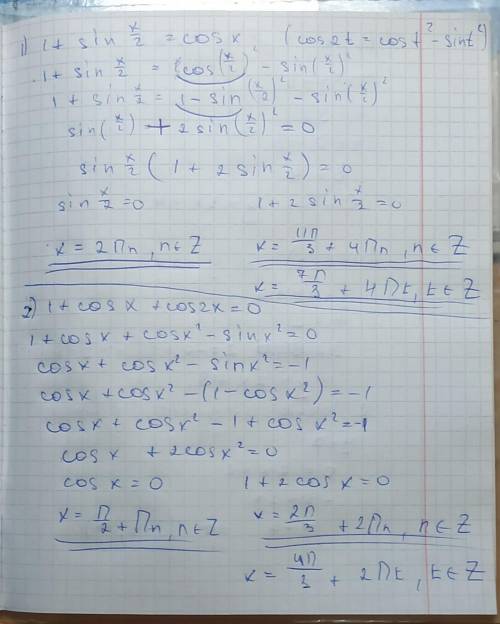 1) 1 + sin x/2 = cos x (cos2t = cost² - sint²)
1 + sin x/2 = (cos(x/2)² - sin(x/2)²
1 + sin x/2 = 1 - sin(x/2)² - sin(x/2)²
sin(x/2) + 2 sin(x/2)² = 0
sin x/2 (1 + 2 sin x/2) = 0
sin x/2 = 0 1 + 2 sin x/2 = 0
x = 2Пn, n∈Z x = 11П/3 + 4Пn, n∈Z
x = 7П/3 + 4Пt, t∈Z
2) 1 + cosx + cos2x = 0
1 + cosx + cosx² - sinx² = 0
cosx + cosx² - sinx² = -1
cosx + cosx² - (1 - cosx²) = -1
cosx + cosx² - 1 + cosx² = -1
cosx + 2cosx² = 0
cosx = 0 1 + 2cosx = 0
x = П/2 + Пn, n∈Z x = 2П/3 + 2Пn, n∈Z
x = 4П/3 + 2Пt, t∈Z